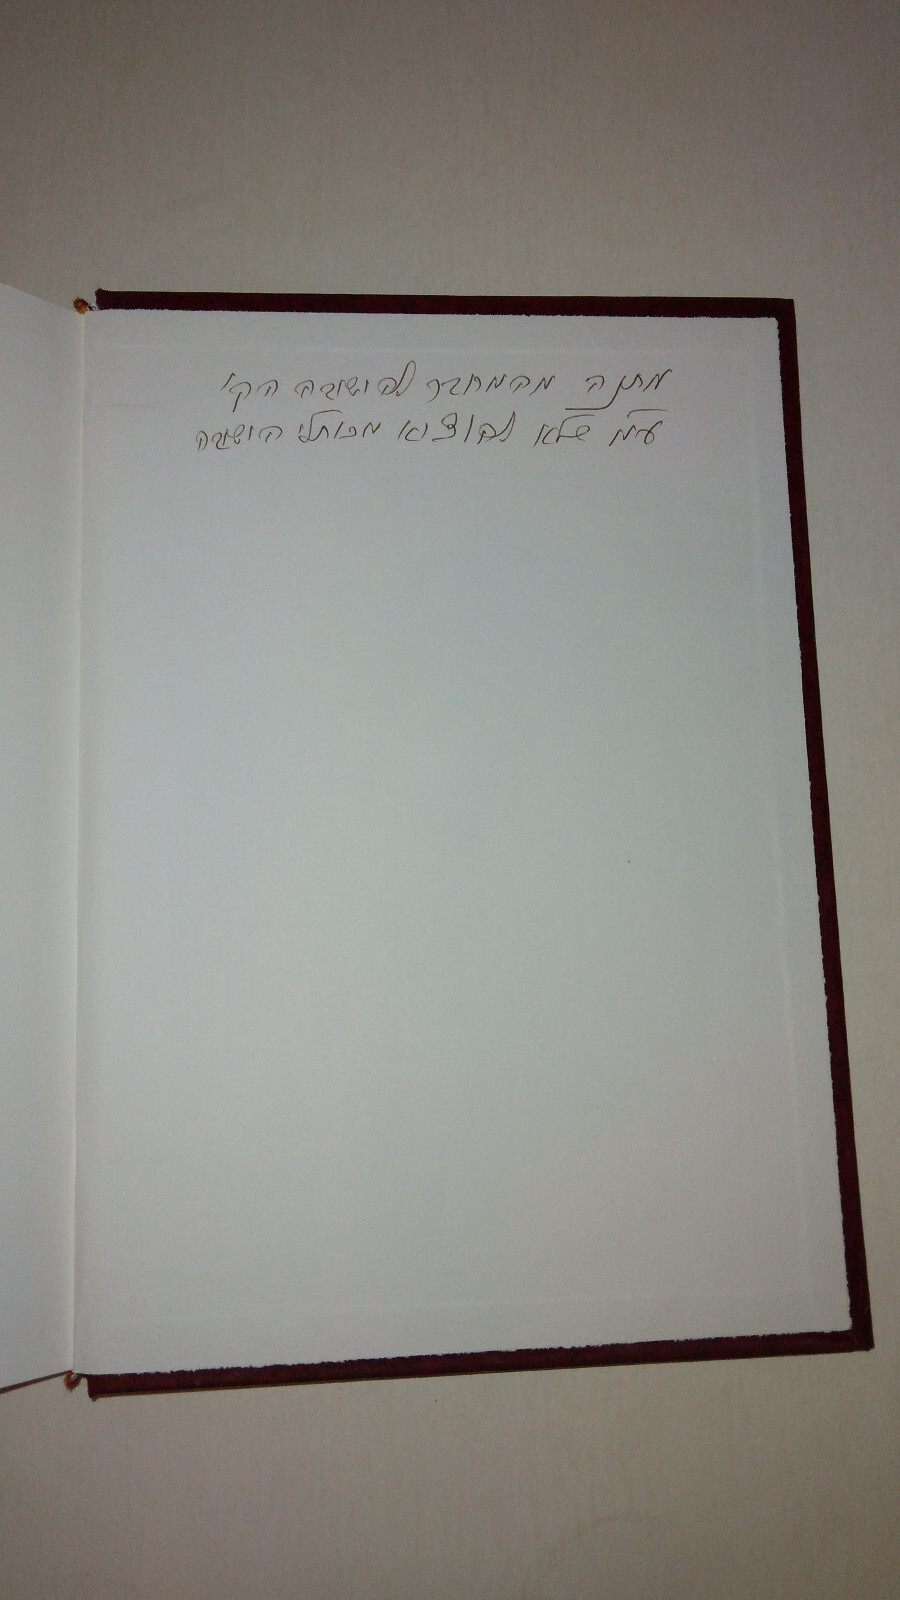 מתנה מהמחבר להישיבה הק'
ע"מ שלא להוציא מכותלי הישיבה